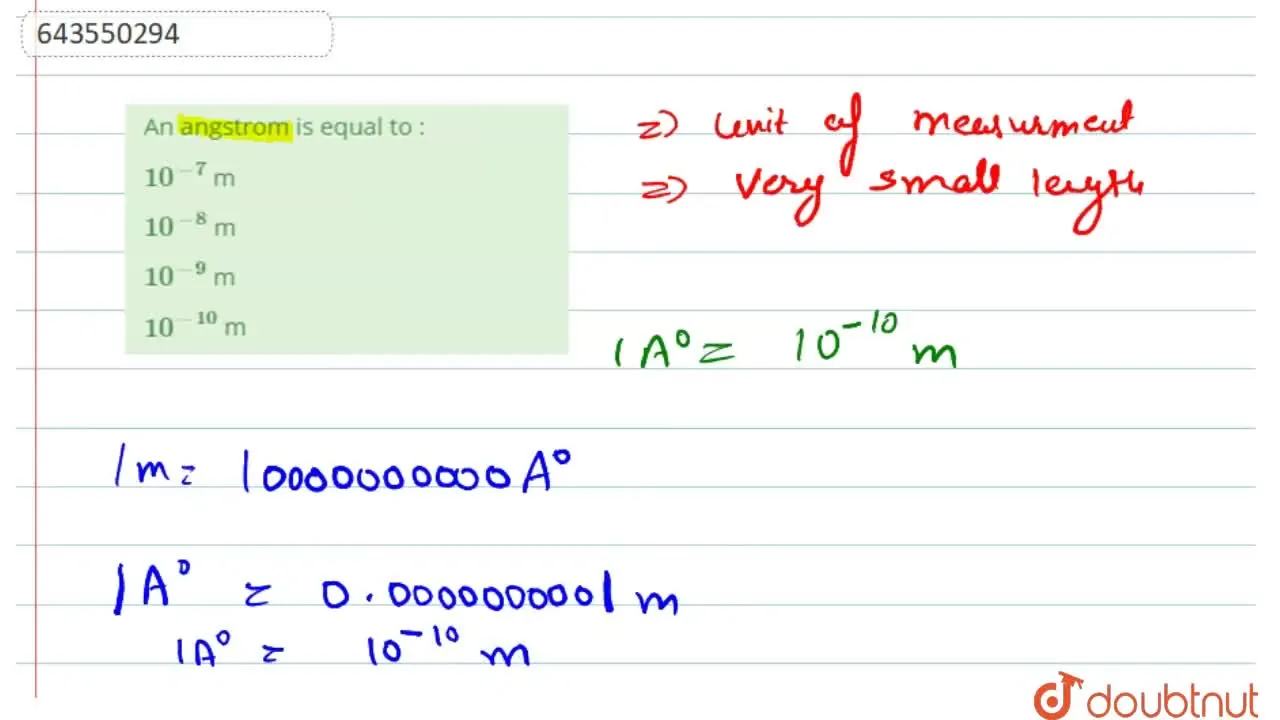 643550294
An angstrom is equal to :
10⁻⁷ m
10⁻⁸ m
10⁻⁹ m
10⁻¹⁰ m
=) Unit of measurment
=) Very small length
1 A⁰ = 10⁻¹⁰ m
1 m = 10000000000 A⁰
1 A⁰ = 0.0000000001 m
1 A⁰ = 10⁻¹⁰ m
doubtnut